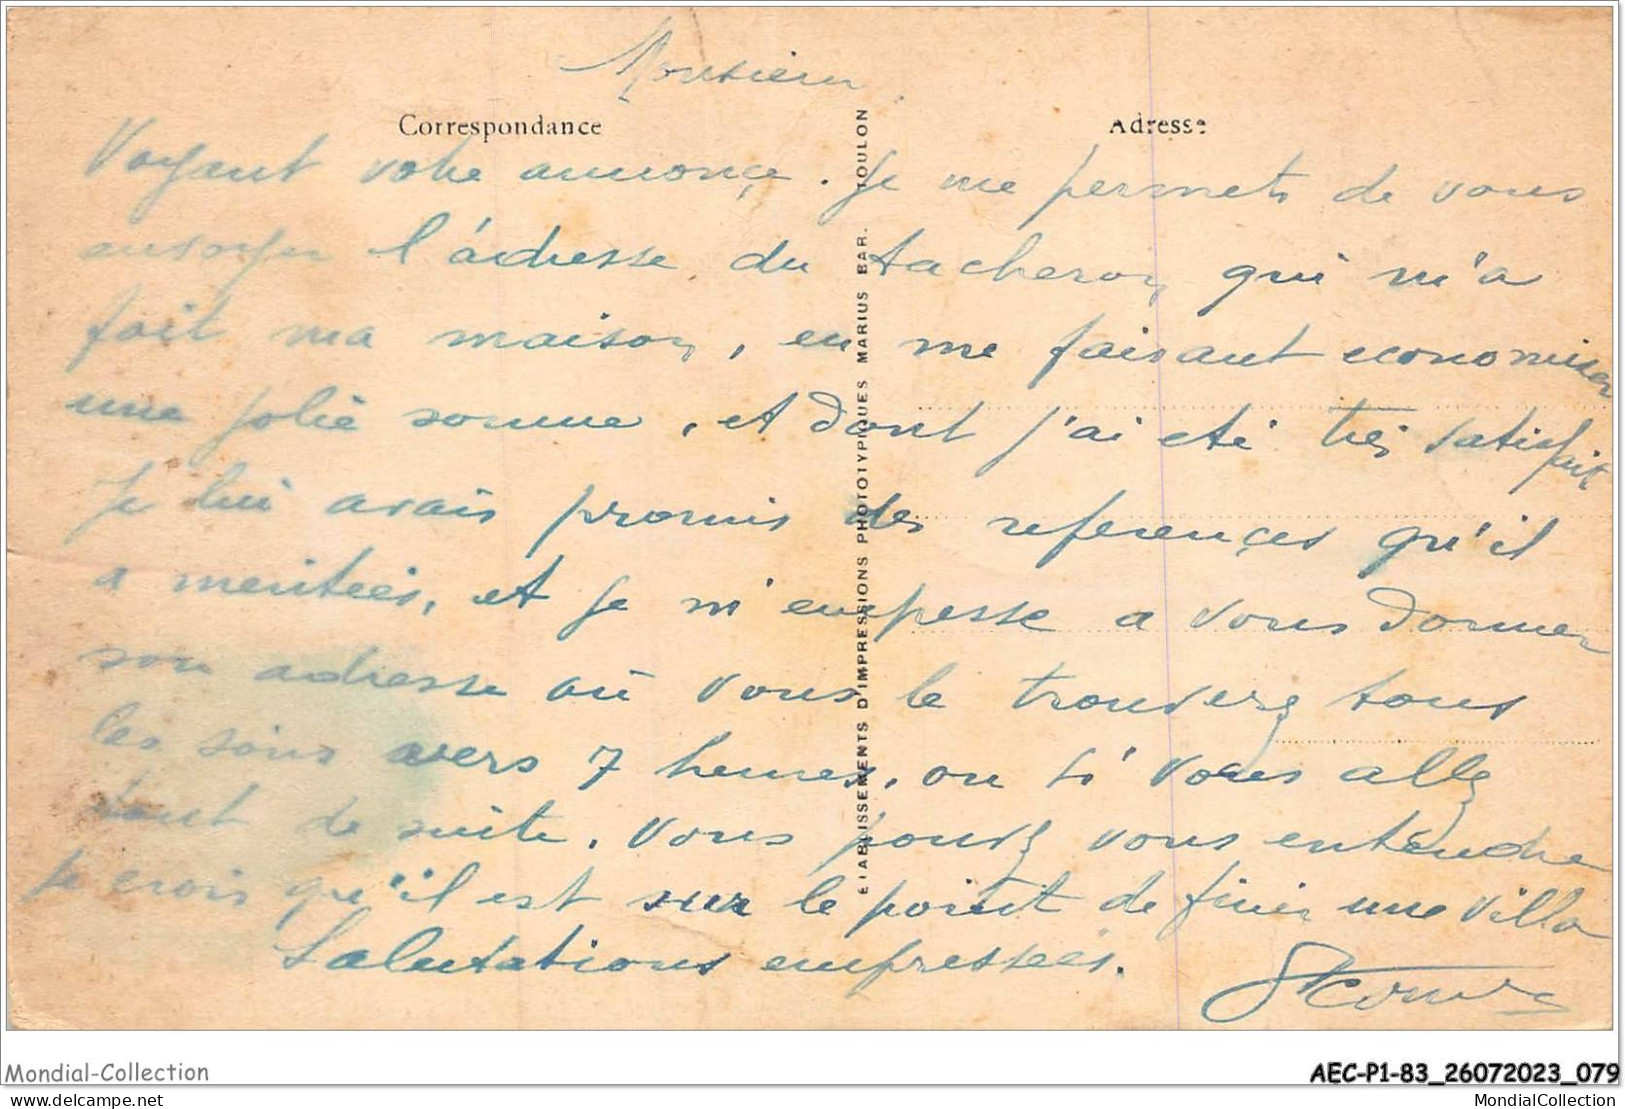 Monsieur
Correspondance
Adresse
Voyant votre annonçe. Je me permets de vous
envoyer l'adresse du tacheron qui m'a
fait ma maison, en me faisant economiser
une jolie somme, et dont j'ai eté très satisfait
Je lui avais promis des references qu'il
a meritées, et je m'empesse a vous donner
son adresse où vous le trouverez tous
les soirs avers 7 heures, ou si vous allez
tout de suite. Vous pouvez vous entendre
je crois qu'il est sur le point de finir une villa
Salutations empressées.
ETABLISSEMENTS D'IMPRESSIONS PHOTOTYPIQUES MARIUS BAR. TOULON
Mondial-Collection
AEC-P1-83_26072023_079
delcampe.net
MondialCollection